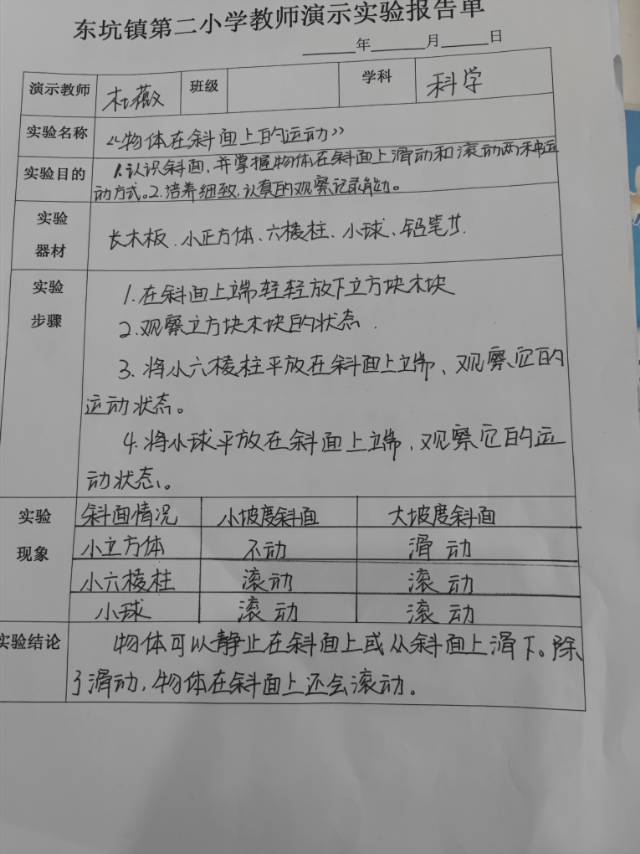 东坑镇第二小学教师演示实验报告单
____年____月____日
演示教师 杜薇 班级 学科 科学
实验名称 《物体在斜面上的运动》
实验目的 1.认识斜面,并掌握物体在斜面上滑动和滚动两种运
动方式。2.培养细致、认真的观察记录能力。
实验器材 长木板、小正方体、六棱柱、小球、铅笔
实验步骤 1.在斜面上端轻轻放下立方块木块
2.观察立方块木块的状态.
3.将小六棱柱平放在斜面上端、观察它的
运动状态。
4.将小球平放在斜面上端,观察它的运
动状态。
实验现象 斜面情况 小坡度斜面 大坡度斜面
小立方体 不动 滑动
小六棱柱 滚动 滚动
小球 滚动 滚动
实验结论 物体可以静止在斜面上或从斜面上滑下。除
了滑动,物体在斜面上还会滚动。